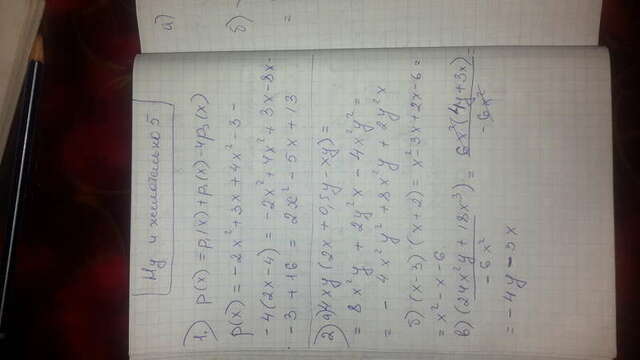 Ну и желательно 5
1.) p(x) = p₁(x) + p₂(x) - 4p₃(x)
p(x) = -2x² + 3x + 4x² - 3 -
- 4(2x - 4) = -2x² + 4x² + 3x - 8x -
- 3 + 16 = 2x² - 5x + 13
2) а) 4xy (2x + 0,5y - xy) =
= 8x²y + 2y²x - 4x²y² =
= - 4x²y² + 8x²y + 2y²x
б) (x - 3) (x + 2) = x² - 3x + 2x - 6 =
= x² - x - 6
в) (24x²y + 18x³) / -6x² = 6x²(4y + 3x) / -6x² =
= -4y - 3x
а)
б)
=